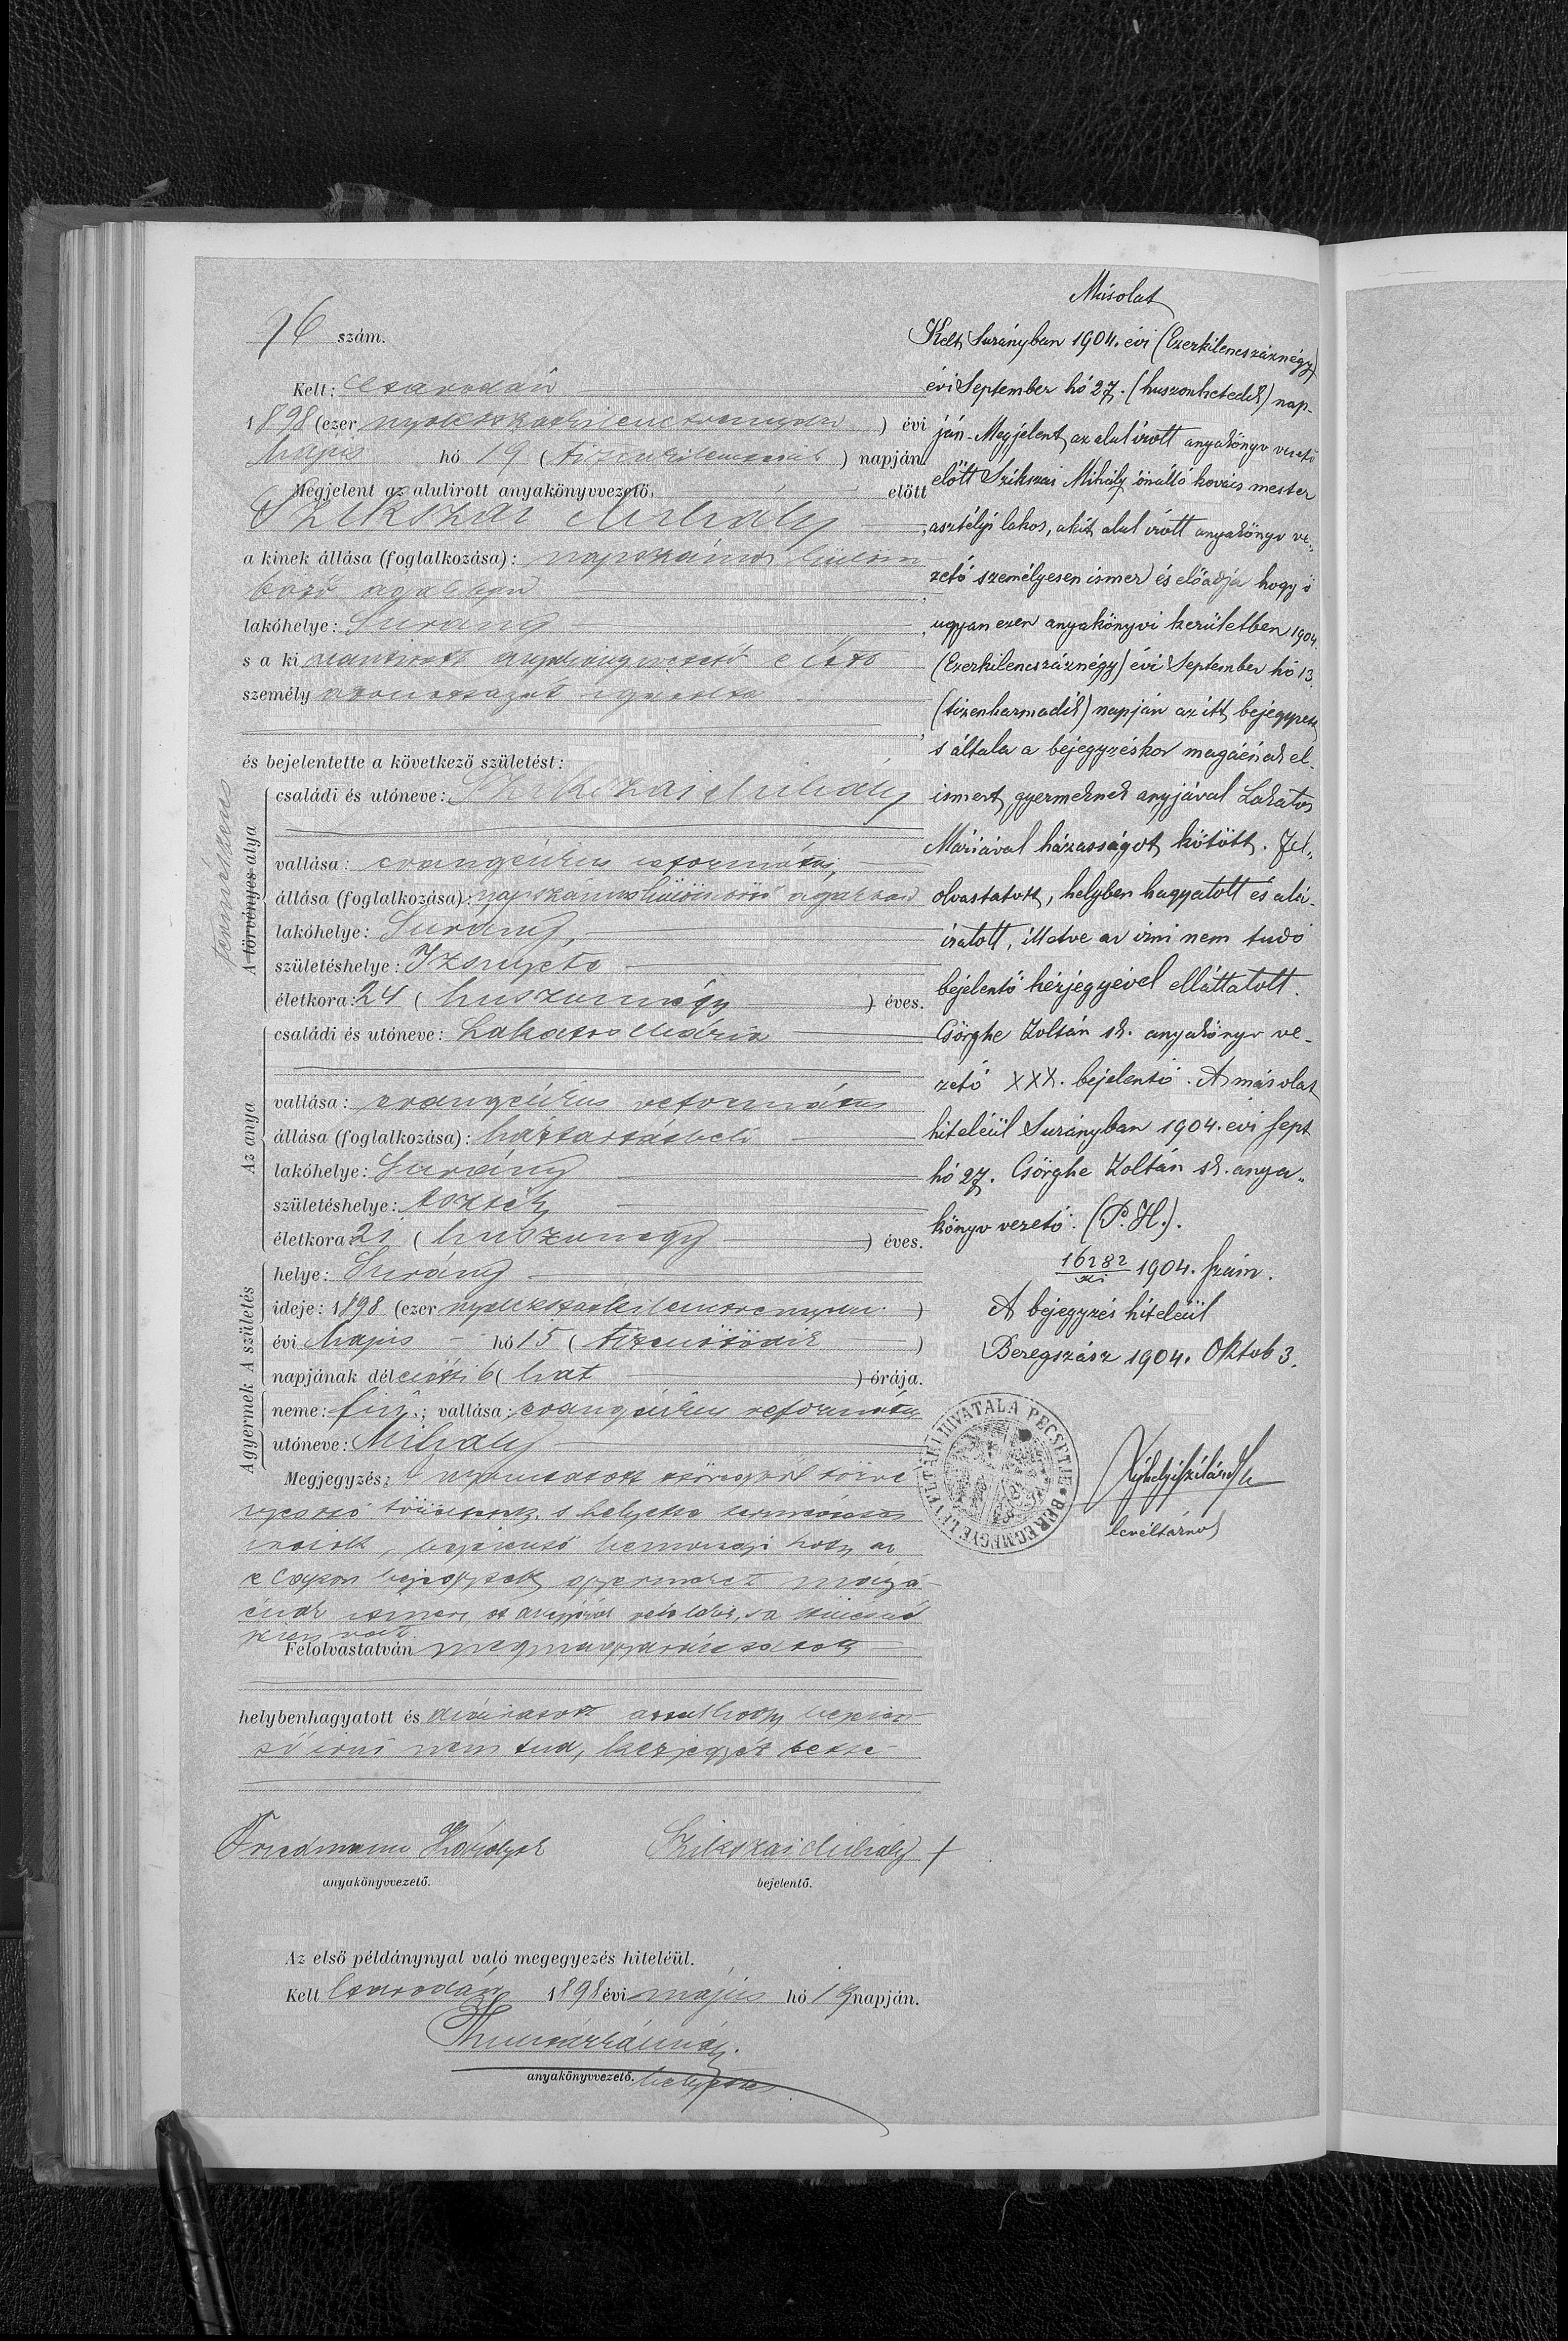 76 szám.
Kelt: Csarodán
1898 (ezer nyolczszázkilenczvennyolcz) évi
Május hó 19 (tizenkilenczedik) napján.
Megjelent az alulirott anyakönyvvezető, előtt
Szikszai Mihály,
a kinek állása (foglalkozása): napszámos külön
böző ágakban,
lakóhelye: Surány,
s a ki nevezett anyakönyvvezető előtt
személy azonosságát igazolta
és bejelentette a következő születést:
természetes
A törvényes atya
családi és utóneve: Szikszai Mihály
vallása: evangélikus református,
állása (foglalkozása): napszámos különböző ágakban
lakóhelye: Surány,
születéshelye:
életkora: 24 (huszonnégy) éves.
Az anya
családi és utóneve: Lakatos Mária
vallása: evangélikus református
állása (foglalkozása): háztartásbeli
lakóhelye: Surány
születéshelye:
életkora 21 (huszonegy) éves.
A születés
helye: Surány
ideje: 1898 (ezer nyolczszázkilenczvennyolcz)
évi Május hó 15 (tizenötödik)
napjának délelőtti 6 (hat) órája.
A gyermek
neme: fiú; vallása: evangélikus református
utóneve: Mihály
Megjegyzés: A nyomtatott szövegből törvé
nyes szó töröltetett, s helyette természetes
iratott, bejelentő bemondja hogy az
e lapon bejegyzett gyermeket magá-
énak ismeri,
Felolvastatván megmagyaráztatott
helybenhagyatott és aláiratott azzal hogy bejelen-
tő irni nem tud, kézjegyét tette
Friedmann Károlyné Szikszai Mihály +
anyakönyvvezető. bejelentő.
Az első példánynyal való megegyezés hiteléül.
Kelt Csarodán 1898 évi május hó 19 napján.
anyakönyvvezető. helyettes
Másolat
Kelt Surányban 1904. évi (Ezerkilenczáznégy)
évi September hó 27. (huszonhetedik) nap-
ján. Megjelent az alulírott anyakönyv vezető
előtt Szikszai Mihály önálló kovács mester
asztélyi lakos, akit alul írott anyakönyv ve-
zető személyesen ismer és előadja hogy ő
ugyan ezen anyakönyvi kerületben 1904.
(Ezerkilenczáznégy) évi September hó 13.
(tizenharmadik) napján az itt bejegyzett
s általa a bejegyzéskor magáénak el-
ismert gyermeknek anyjával Lakatos
Máriával házasságot kötött. Fel-
olvastatott, helyben hagyatott és alá-
íratott, illetve az irni nem tudó
bejelentő kézjegyével elláttatott.
Csörghe Zoltán sk. anyakönyv ve-
zető XXX. bejelentő. A másolat
hiteléül Surányban 1904. évi sept
hó 27. Csörghe Zoltán sk. anya-
könyv vezető. (P.H.).
16282 1904. szám.
A bejegyzés hiteléül
Beregszász 1904. Oktob 3.
BEREGMEGYE LEVÉLTÁRI HIVATALA PECSÉTJE
levéltárnok